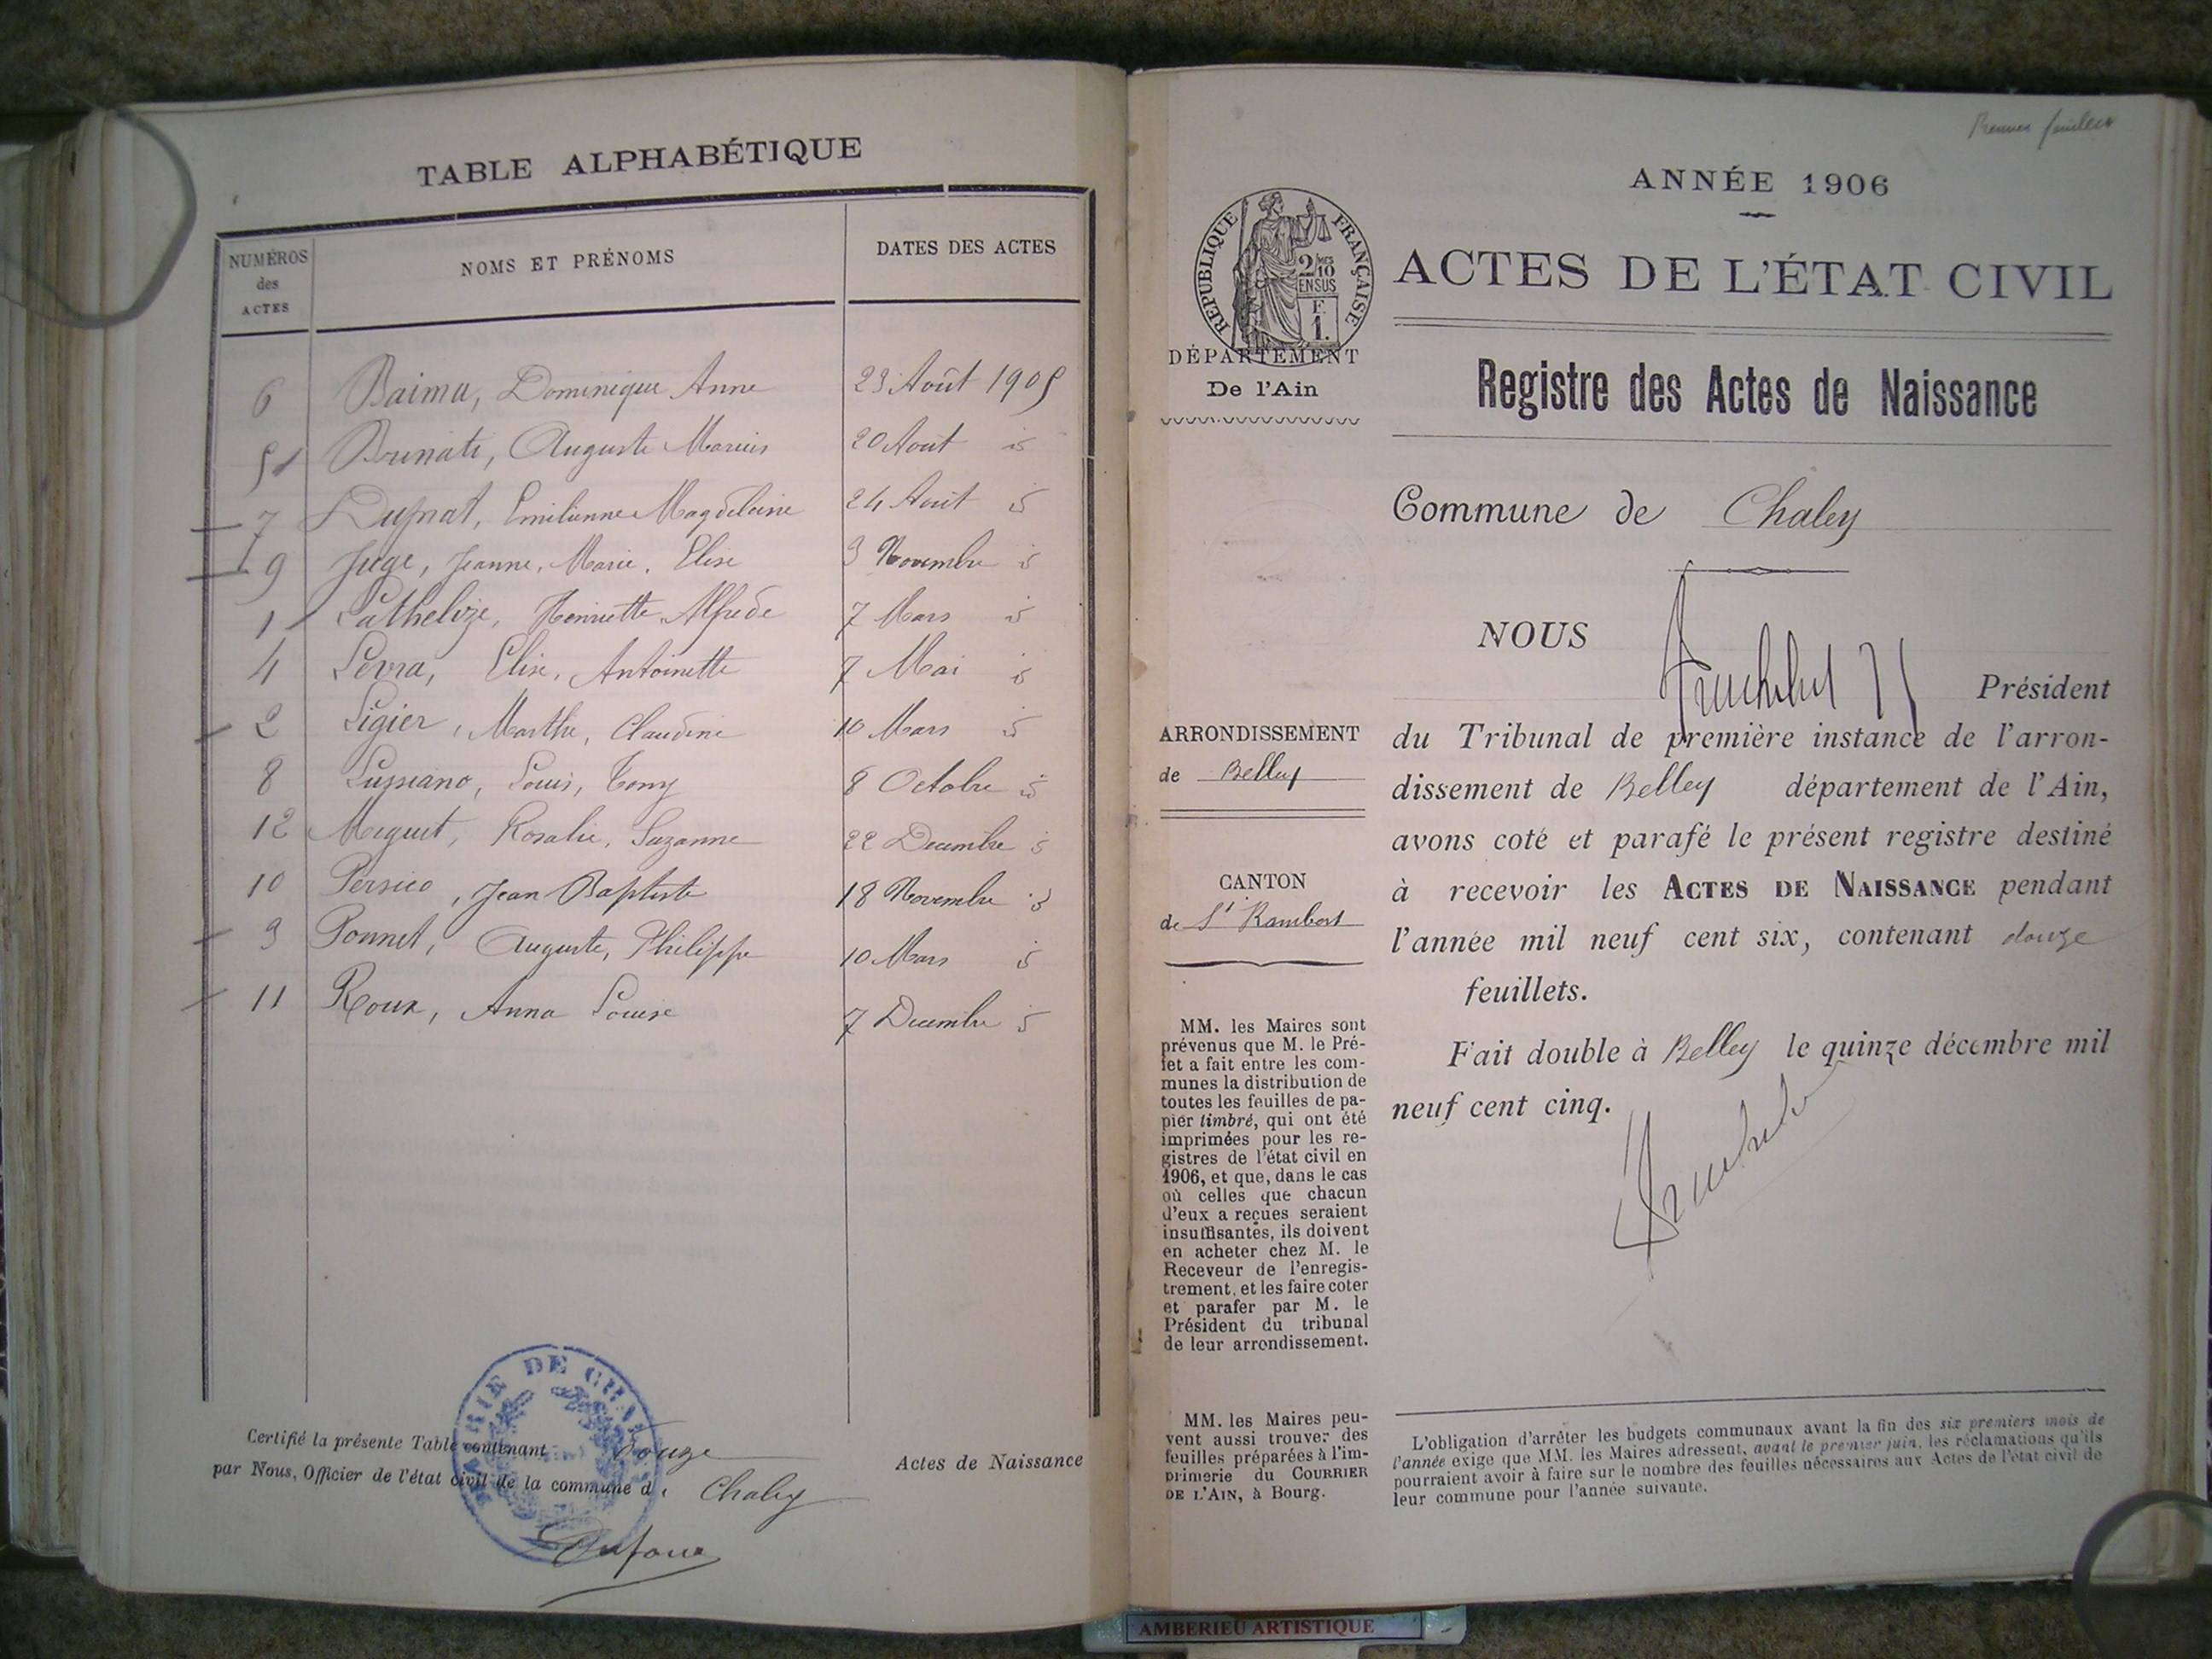 TABLE ALPHABÉTIQUE
NUMÉROS des ACTES
NOMS ET PRÉNOMS
DATES DES ACTES
6 Baima, Dominique Anne 23 Août 1905
5 Brunati, Auguste Marius 20 Aout id
7 Dupnat, Emilienne Magdeleine 24 Aout id
9 Juge, Jeanne, Marie, Elise 3 Novembre id
1 Lathelize, Henriette Alfrede 7 Mars id
4 Levra, Elise, Antoinette 7 Mai id
2 Ligier, Marthe, Claudine 10 Mars id
8 Lussiano, Louis, Tony 8 Octobre id
12 Miguet, Rosalie, Suzanne 22 Decembre id
10 Persico, Jean Baptiste 18 Novembre id
3 Ponnet, Auguste, Philippe 10 Mars id
11 Roux, Anna Louise 7 Decembre id
MAIRIE DE CHALEY
Certifié la présente Table contenant douze Actes de Naissance
par Nous, Officier de l'état civil de la commune d Chaley
Dufour
Premier feuillet
ANNÉE 1906
RÉPUBLIQUE FRANÇAISE
2/10 MES
EN SUS
F.
1.
ACTES DE L'ÉTAT CIVIL
DÉPARTEMENT
De l'Ain
Registre des Actes de Naissance
Commune de Chaley
NOUS
Président
ARRONDISSEMENT
de Belley
CANTON
de St Rambert
du Tribunal de première instance de l'arron-
dissement de Belley département de l'Ain,
avons coté et parafé le présent registre destiné
à recevoir les ACTES DE NAISSANCE pendant
l'année mil neuf cent six, contenant douze
feuillets.
Fait double à Belley le quinze décembre mil
neuf cent cinq.
MM. les Maires sont
prévenus que M. le Pré-
fet a fait entre les com-
munes la distribution de
toutes les feuilles de pa-
pier timbré, qui ont été
imprimées pour les re-
gistres de l'état civil en
1906, et que, dans le cas
où celles que chacun
d'eux a reçues seraient
insuffisantes, ils doivent
en acheter chez M. le
Receveur de l'enregis-
trement, et les faire coter
et parafer par M. le
Président du tribunal
de leur arrondissement.
MM. les Maires peu-
vent aussi trouver des
feuilles préparées à l'im-
primerie du COURRIER
DE L'AIN, à Bourg.
L'obligation d'arrêter les budgets communaux avant la fin des six premiers mois de
l'année exige que MM. les Maires adressent, avant le premier juin, les réclamations qu'ils
pourraient avoir à faire sur le nombre des feuilles nécessaires aux Actes de l'état civil de
leur commune pour l'année suivante.
AMBERIEU ARTISTIQUE